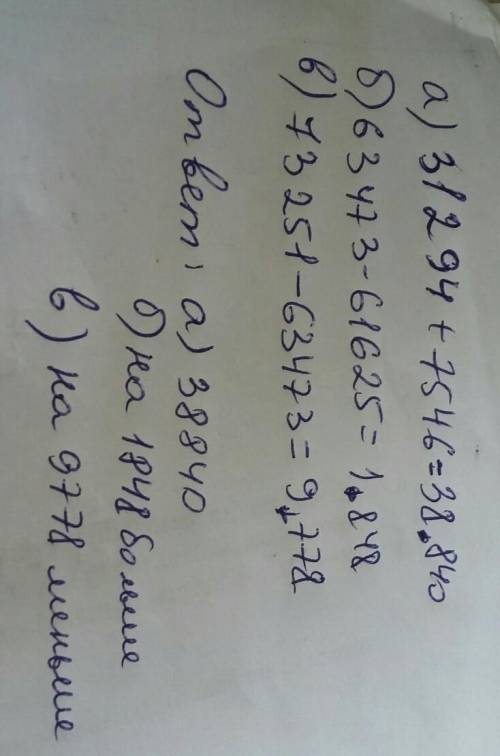 а) 31294+7546=38.840
б) 63473-61625=1.848
в) 73251-63473=9.778
Ответ, а) 38840
б) на 1848 больше
в) на 9778 меньше